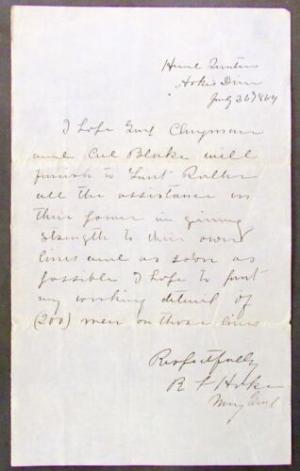 Head Quarters
Hoke's Div
July 26 1864
I hope Genl Clingman
and Col Blake will
furnish to Lieut Roller
all the assistance in
their power in giving
strength to their own
lines and as soon as
possible I hope to put
my working detail of
(200) men on those lines
Respectfully
R F Hoke
Maj Genl